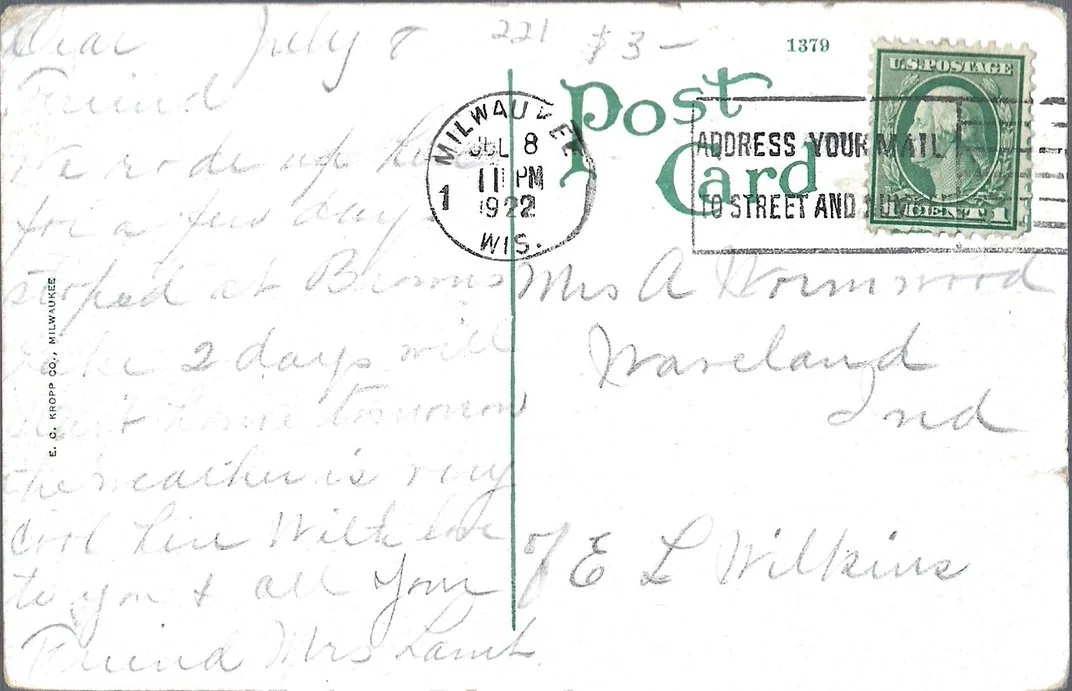 Dear July 8
Friend
We rode up here
for a few days
stoped at Browns
Lake 2 days will
start home tomorrow
the weather is very
cool here With love
to you & all Your
Friend Mrs Lamb
221 $3—
1379
Post
Card
MILWAUKEE
JUL 8
11 PM
1922
1
WIS.
ADDRESS YOUR MAIL
TO STREET AND NUMBER
U.S.POSTAGE
1 CENT 1
Mrs A Wormwood
Waveland
Ind
of E L Wilkins
E. C. KROPP CO., MILWAUKEE